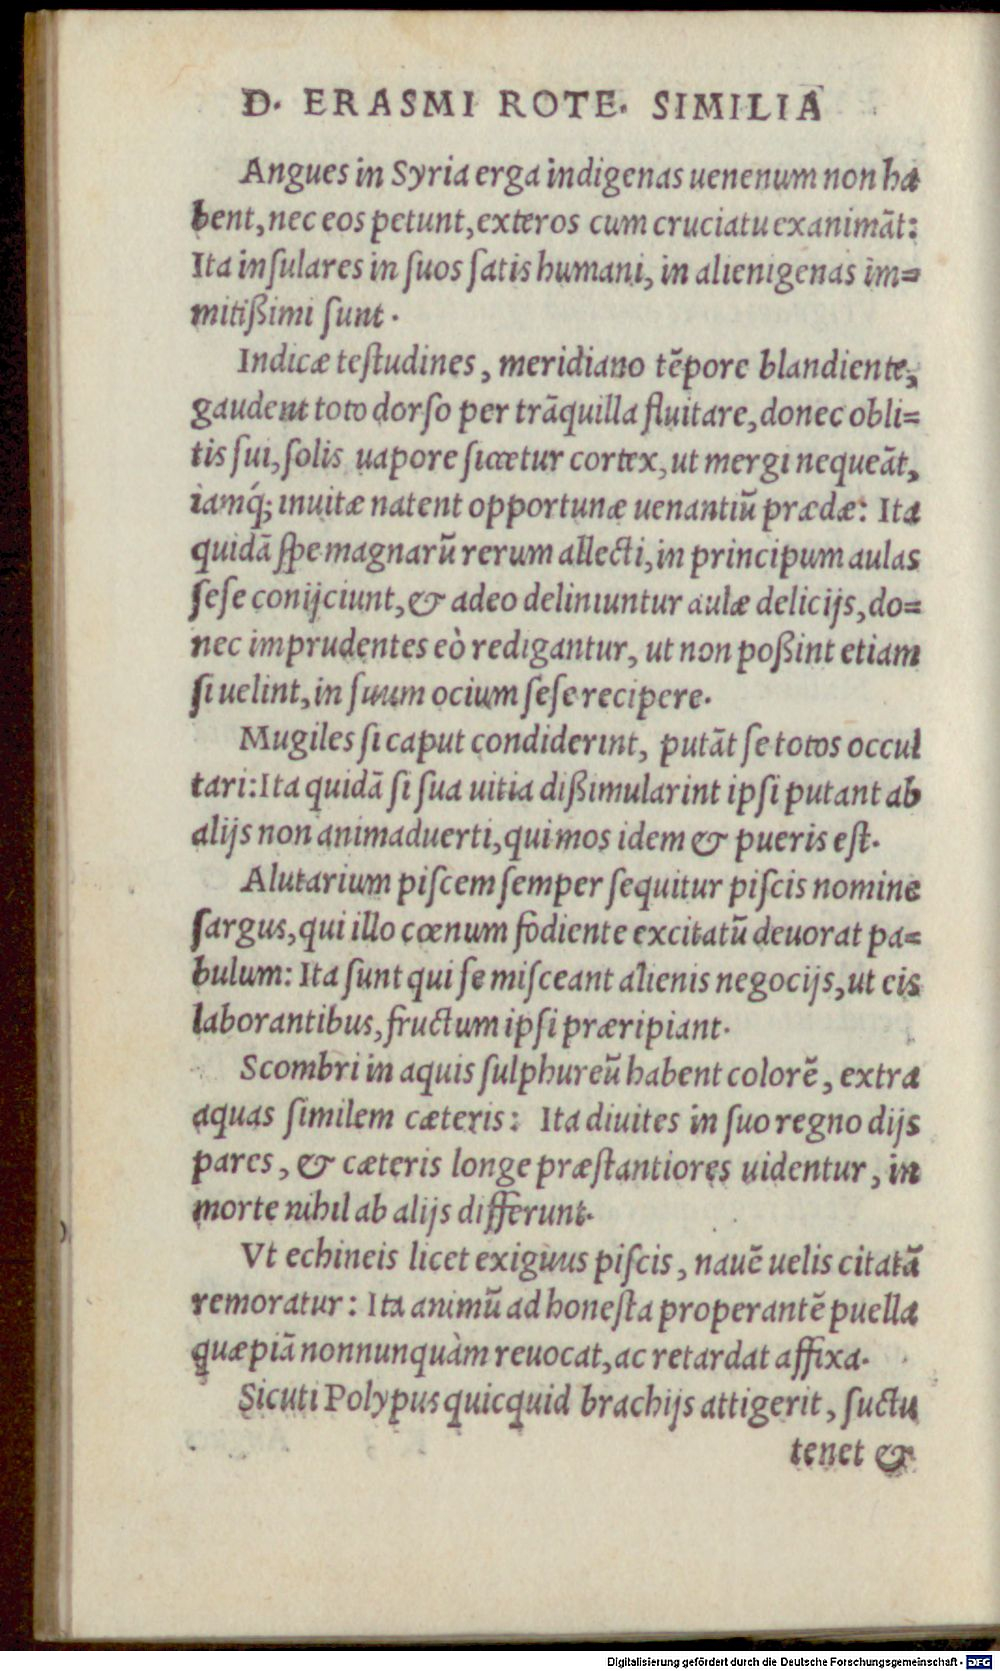 D. ERASMI ROTE. SIMILIA
Angues in Syria erga indigenas uenenum non ha
bent, nec eos petunt, exteros cum cruciatu exanimãt:
Ita insulares in suos satis humani, in alienigenas im=
mitißimi sunt.
Indicæ testudines, meridiano tẽpore blandiente,
gaudent toto dorso per trãquilla fluitare, donec obli=
tis sui, solis uapore siccetur cortex, ut mergi nequeãt,
iamq́; inuitæ natent opportunæ uenantiũ prædæ: Ita
quidã spe magnarũ rerum allecti, in principum aulas
sese conijciunt, & adeo deliniuntur aulæ delicijs, do=
nec imprudentes eò redigantur, ut non poßint etiam
si uelint, in suum ocium sese recipere.
Mugiles si caput condiderint, putãt se totos occul
tari: Ita quidã si sua uitia dißimularint ipsi putant ab
alijs non animaduerti, qui mos idem & pueris est.
Alutarium piscem semper sequitur piscis nomine
sargus, qui illo cœnum fodiente excitatũ deuorat pa=
bulum: Ita sunt qui se misceant alienis negocijs, ut eis
laborantibus, fructum ipsi præripiant.
Scombri in aquis sulphureũ habent colorẽ, extra
aquas similem cæteris: Ita diuites in suo regno dijs
pares, & cæteris longe præstantiores uidentur, in
morte nihil ab alijs differunt.
Vt echineis licet exiguus piscis, nauẽ uelis citatã
remoratur: Ita animũ ad honesta properantẽ puella
quæpiã nonnunquàm reuocat, ac retardat affixa.
Sicuti Polypus quicquid brachijs attigerit, suctu
tenet &
Digitalisierung gefördert durch die Deutsche Forschungsgemeinschaft - DFG